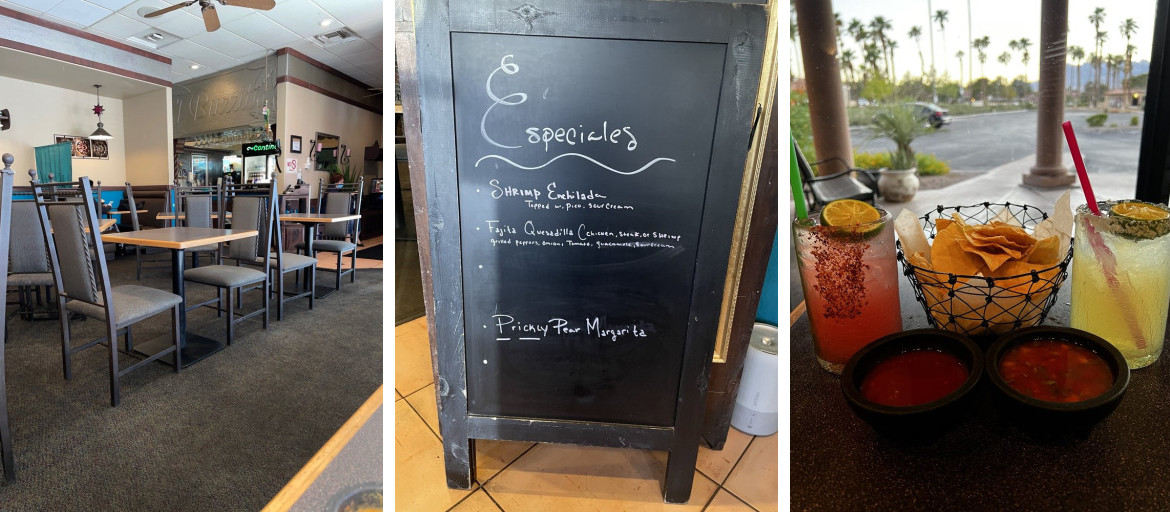 Cantina
Especiales
• Shrimp Enchilada
Topped w. pico. sour cream
• Fajita Quesadilla (chicken, steak, or shrimp
grilled peppers, onions, Tomato, guacamole, sour cream
•
• Prickly Pear Margarita
•